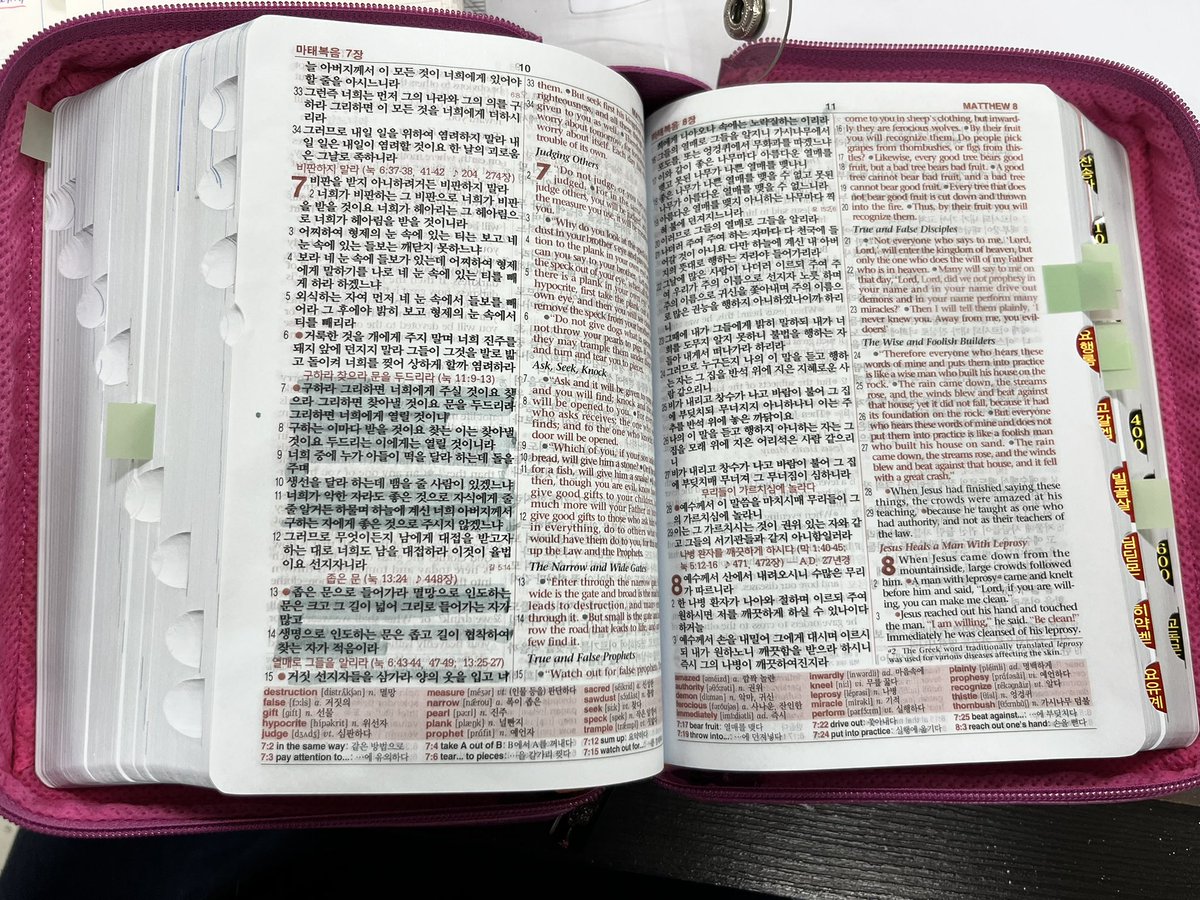 마태복음 7장
10
늘 아버지께서 이 모든 것이 너희에게 있어야
할 줄을 아시느니라
33 그런즉 너희는 먼저 그의 나라와 그의 의를 구
하라 그리하면 이 모든 것을 너희에게 더하시
리라
34 그러므로 내일 일을 위하여 염려하지 말라 내
일 일은 내일이 염려할 것이요 한 날의 괴로움
은 그날로 족하니라
비판하지 말라 (눅 6:37-38, 41-42 ♪ 204, 274장)
7 비판을 받지 아니하려거든 비판하지 말라
2 너희가 비판하는 그 비판으로 너희가 비판
을 받을 것이요 너희가 헤아리는 그 헤아림으
로 너희가 헤아림을 받을 것이니라
3 어찌하여 형제의 눈 속에 있는 티는 보고 네
눈 속에 있는 들보는 깨닫지 못하느냐
4 보라 네 눈 속에 들보가 있는데 어찌하여 형제
에게 말하기를 나로 네 눈 속에 있는 티를 빼
게 하라 하겠느냐
5 외식하는 자여 먼저 네 눈 속에서 들보를 빼
어라 그 후에야 밝히 보고 형제의 눈 속에서
티를 빼리라
6 거룩한 것을 개에게 주지 말며 너희 진주를
돼지 앞에 던지지 말라 그들이 그것을 발로 밟
고 돌이켜 너희를 찢어 상하게 할까 염려하라
구하라 찾으라 문을 두드리라 (눅 11:9-13)
7 구하라 그리하면 너희에게 주실 것이요 찾
으라 그리하면 찾아낼 것이요 문을 두드리라
그리하면 너희에게 열릴 것이니
8 구하는 이마다 받을 것이요 찾는 이는 찾아낼
것이요 두드리는 이에게는 열릴 것이니라
9 너희 중에 누가 아들이 떡을 달라 하는데 돌을
주며
10 생선을 달라 하는데 뱀을 줄 사람이 있겠느냐
11 너희가 악한 자라도 좋은 것으로 자식에게 줄
줄 알거든 하물며 하늘에 계신 너희 아버지께서
구하는 자에게 좋은 것으로 주시지 않겠느냐
12 그러므로 무엇이든지 남에게 대접을 받고자
하는 대로 너희도 남을 대접하라 이것이 율법
이요 선지자니라
좁은 문 (눅 13:24 ♪ 448장)
13 좁은 문으로 들어가라 멸망으로 인도하는
문은 크고 그 길이 넓어 그리로 들어가는 자가
많고
14 생명으로 인도하는 문은 좁고 길이 협착하여
찾는 자가 적음이라
열매로 그들을 알리라 (눅 6:43-44, 47-49; 13:25-27)
15 거짓 선지자들을 삼가라 양의 옷을 입고 너
33 them. But seek first his
righteousness, and all
34 given to you as well.
worry about tomorrow,
worry about itself. Each
trouble of its own.
Judging Others
7 "Do not judge, or
2 judged. For
judge others, you will
the measure you use,
you.
3 "Why do you look at the
dust in your brother's eye
tion to the plank in your
can you say to your brother,
the speck out of your eye,'
there is a plank in your
hypocrite, first take the
own eye, and then you
remove the speck from your
6 "Do not give dogs what
not throw your pearls to pigs.
they may trample them
and turn and tear you to
Ask, Seek, Knock
7 "Ask and it will be given
and you will find; knock and
8 will be opened to you.
who asks receives; the one
finds; and to the one who
door will be opened.
9 "Which of you, if your
10 bread, will give him a stone?
11 for a fish, will give him a snake?
then, though you are evil,
give good gifts to your
much more will your Father
12 give good gifts to those who ask
in everything, do to others
would have them do to you, for
up the Law and the Prophets.
The Narrow and Wide Gates
13 "Enter through the narrow
wide is the gate and broad is the
leads to destruction, and many
14 through it. But small is the gate
row the road that leads to life, and
few find it.
True and False Prophets
15 "Watch out for false prophets.
destruction [distrʌ́kʃən] n. 멸망
false [fɔːls] a. 거짓의
gift [gift] n. 선물
hypocrite [hípəkrit] n. 위선자
judge [dʒʌdʒ] vt. 심판하다
measure [méʒər] vt. (인물 등을) 판단하다
narrow [nǽrou] a. 폭이 좁은
pearl [pəːrl] n. 진주
plank [plæŋk] n. 널빤지
prophet [práfit] n. 예언자
sacred
sawdust
seek [siːk] vt. 찾다
speck
trample
7:2 in the same way: 같은 방법으로
7:3 pay attention to...: …에 유의하다
7:4 take A out of B: B에서 A를 꺼내다
7:6 tear... to pieces: …을 갈가리 찢다
7:12 sum up:
7:15 watch out for...:
마태복음 8장
11
MATTHEW 8
에게 나아오나 속에는 노략질하는 이리라
그들의 열매로 그들을 알지니 가시나무에서
포도를, 또는 엉겅퀴에서 무화과를 따겠느냐
이와 같이 좋은 나무마다 아름다운 열매를
맺고 못된 나무가 나쁜 열매를 맺나니
좋은 나무가 나쁜 열매를 맺을 수 없고 못된
나무가 아름다운 열매를 맺을 수 없느니라
아름다운 열매를 맺지 아니하는 나무마다 찍
혀 불에 던져지느니라
이러므로 그들의 열매로 그들을 알리라
나더러 주여 주여 하는 자마다 다 천국에 들
어갈 것이 아니요 다만 하늘에 계신 내 아버
지의 뜻대로 행하는 자라야 들어가리라
그날에 많은 사람이 나더러 이르되 주여 주
여 우리가 주의 이름으로 선지자 노릇 하며
주의 이름으로 귀신을 쫓아내며 주의 이름으
로 많은 권능을 행하지 아니하였나이까 하리
니
그때에 내가 그들에게 밝히 말하되 내가 너
희를 도무지 알지 못하니 불법을 행하는 자
들아 내게서 떠나가라 하리라
그러므로 누구든지 나의 이 말을 듣고 행하
는 자는 그 집을 반석 위에 지은 지혜로운 사
람 같으리니
비가 내리고 창수가 나고 바람이 불어 그 집
에 부딪치되 무너지지 아니하나니 이는 주
추를 반석 위에 놓은 까닭이요
나의 이 말을 듣고 행하지 아니하는 자는 그
집을 모래 위에 지은 어리석은 사람 같으리
니
27 비가 내리고 창수가 나고 바람이 불어 그 집
에 부딪치매 무너져 그 무너짐이 심하니라
무리들이 가르치심에 놀라다
28 예수께서 이 말씀을 마치시매 무리들이 그
의 가르치심에 놀라니
29 이는 그 가르치시는 것이 권위 있는 자와 같
고 그들의 서기관들과 같지 아니함일러라
나병 환자를 깨끗하게 하시다 (막 1:40-45;
눅 5:12-16 ♪ 471, 472장) — A.D. 27년경
8 예수께서 산에서 내려오시니 수많은 무리
가 따르니라
2 한 나병 환자가 나아와 절하며 이르되 주여
원하시면 저를 깨끗하게 하실 수 있나이다
하거늘
3 예수께서 손을 내밀어 그에게 대시며 이르시
되 내가 원하노니 깨끗함을 받으라 하시니
즉시 그의 나병이 깨끗하여진지라
come to you in sheep's clothing, but inward-
16 ly they are ferocious wolves. By their fruit
you will recognize them. Do people pick
grapes from thornbushes, or figs from this-
17 tles? Likewise, every good tree bears good
18 fruit, but a bad tree bears bad fruit. A good
tree cannot bear bad fruit, and a bad tree
19 cannot bear good fruit. Every tree that does
not bear good fruit is cut down and thrown
20 into the fire. Thus, by their fruit you will
recognize them.
True and False Disciples
21 "Not everyone who says to me, 'Lord,
Lord,' will enter the kingdom of heaven, but
only the one who does the will of my Father
22 who is in heaven. Many will say to me on
that day, 'Lord, Lord, did we not prophesy in
your name and in your name drive out
demons and in your name perform many
23 miracles?' Then I will tell them plainly, 'I
never knew you. Away from me, you evil-
doers!'
The Wise and Foolish Builders
24 "Therefore everyone who hears these
words of mine and puts them into practice
is like a wise man who built his house on the
25 rock. The rain came down, the streams
rose, and the winds blew and beat against
that house; yet it did not fall, because it had
26 its foundation on the rock. But everyone
who hears these words of mine and does not
put them into practice is like a foolish man
27 who built his house on sand. The rain
came down, the streams rose, and the winds
blew and beat against that house, and it fell
with a great crash."
28 When Jesus had finished saying these
things, the crowds were amazed at his
29 teaching, because he taught as one who
had authority, and not as their teachers of
the law.
Jesus Heals a Man With Leprosy
8 When Jesus came down from the
mountainside, large crowds followed
2 him. A man with leprosy came and knelt
before him and said, "Lord, if you are will-
ing, you can make me clean."
3 Jesus reached out his hand and touched
the man. "I am willing," he said. "Be clean!"
Immediately he was cleansed of his leprosy.
*2 The Greek word traditionally translated leprosy
was used for various diseases affecting the skin.
amazed a. 깜짝 놀란
authority n. 권위
demon n. 악마, 귀신
ferocious a. 사나운, 잔인한
immediately ad. 즉시
inwardly ad. 마음속에
kneel [niːl] vi. 무릎 꿇다
leprosy n. 나병
miracle n. 기적
perform vt. 실행하다
plainly ad. 명백하게
prophesy vt. 예언하다
recognize vt. 알다
thistle n. 엉겅퀴
thornbush n. 가시나무 덤불
7:17 bear fruit: 열매를 맺다
7:19 throw into...: …에 던져넣다
7:22 drive out: 쫓아내다
7:24 put into practice: 실행에 옮기다
7:25 beat against...: …에 부딪치다
8:3 reach out one's hand: 손을 뻗다
찬송가
요행롬
고갈엡
빌골살
400
600
히약벧
교독문
요유계